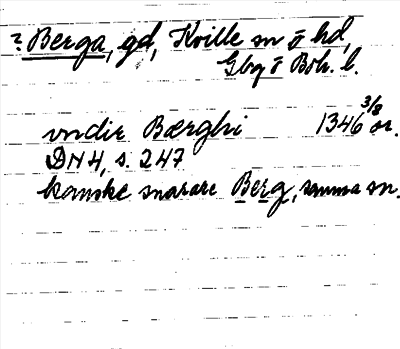 ? Berga, gd, Kville sn o hd,
Gbg o Boh. l.
vndir Bærghi 1346 3/3 or.
DN 4, s. 247
kanske snarare Berg, samma sn.